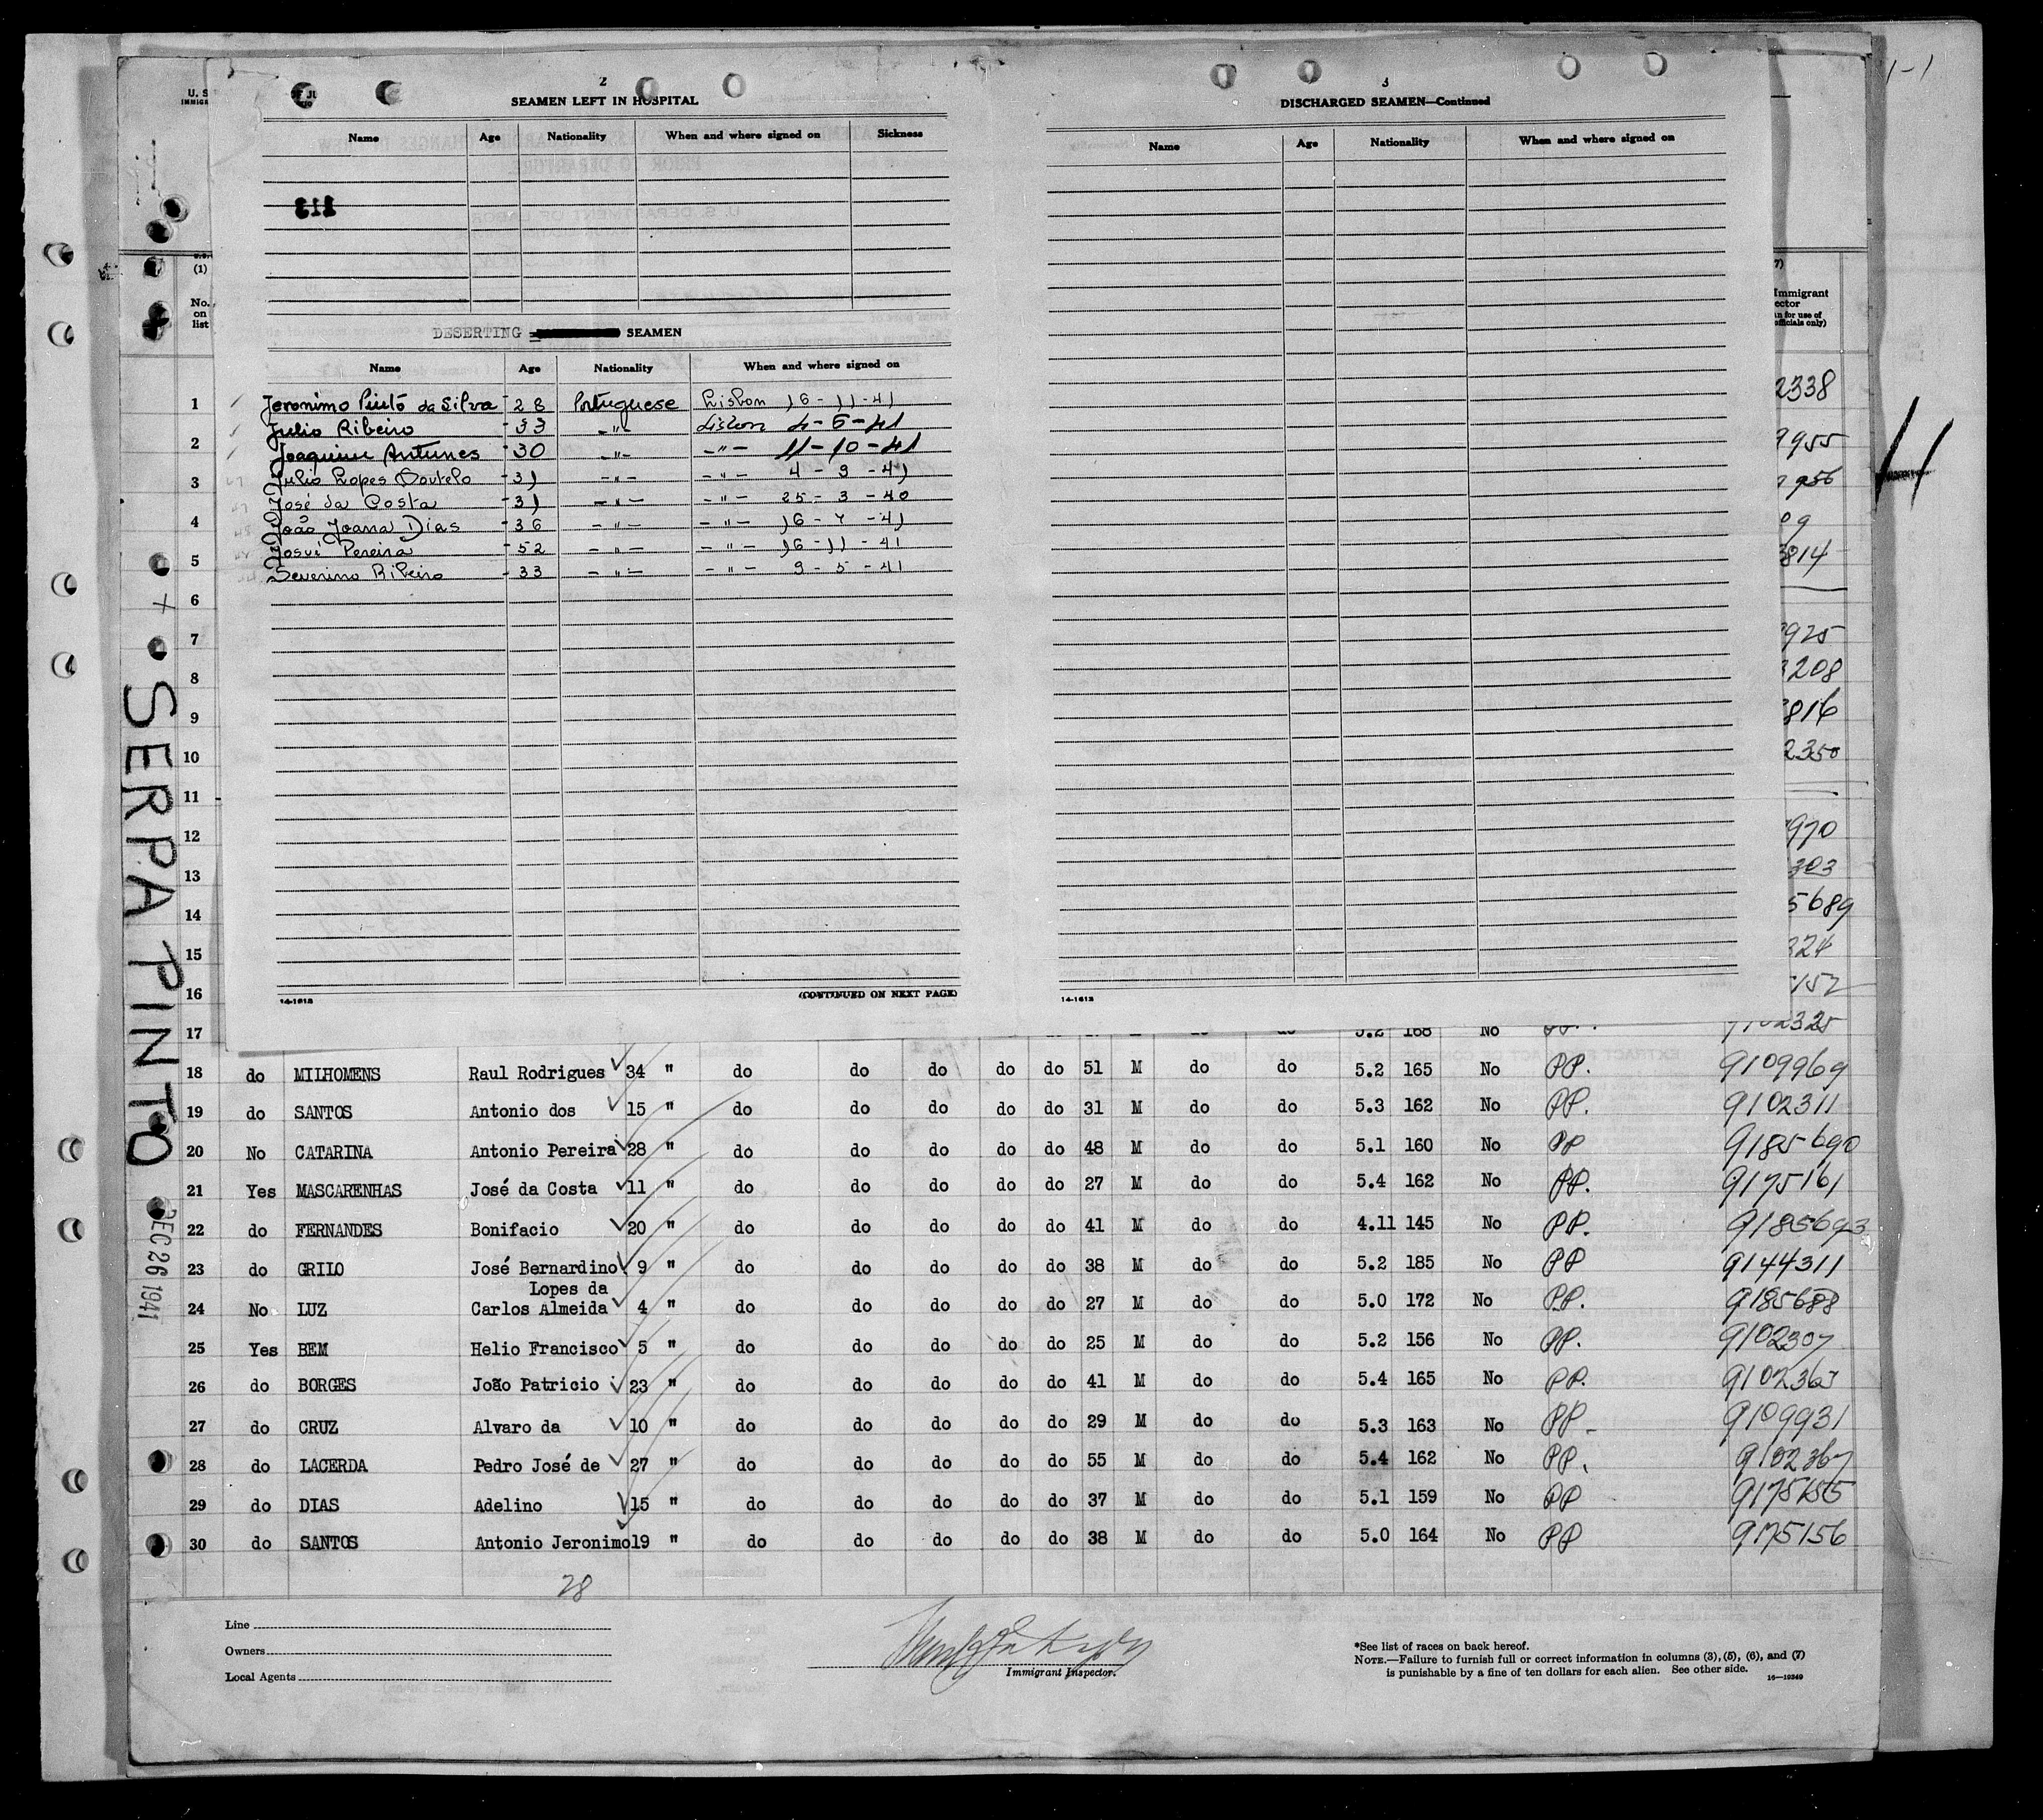 2
SEAMEN LEFT IN HOSPITAL
Name Age Nationality When and where signed on Sickness
113
DESERTING SEAMEN
Name Age Nationality When and where signed on
Jeronimo Pinto da Silva - 28 Portuguese Lisbon 16-11-41
Julio Ribeiro - 33 -"- Lisbon 4-6-41
Joaquim Antunes - 30 -"- -"- 11-10-41
Julio Lopes - 31 -"- -"- 4-9-41
José da Costa - 31 -"- -"- 25-3-40
João Joana Dias - 36 -"- -"- 16-7-41
Josué Pereira - 52 -"- -"- 16-11-41
Severino Ribeiro - 33 -"- -"- 9-5-41
14-1612 (CONTINUED ON NEXT PAGE)
3
DISCHARGED SEAMEN—Continued
Name Age Nationality When and where signed on
14-1612
U. S
(1)
No. on list
1
2
3
4
5
6
7
8
9
10
11
12
13
14
15
16
Immigrant
2338
9955
956
09
3814
925
3208
3816
2350
970
303
5689
324
152
SERPA PINTO
DEC 26 1941
17 5.2 168 No PP. 9102325
18 do MILHOMENS Raul Rodrigues 34 " do do do do do 51 M do do 5.2 165 No PP. 9109969
19 do SANTOS Antonio dos 15 " do do do do do 31 M do do 5.3 162 No PP. 9102311
20 No CATARINA Antonio Pereira 28 " do do do do do 48 M do do 5.1 160 No PP 9185690
21 Yes MASCARENHAS José da Costa 11 " do do do do do 27 M do do 5.4 162 No PP. 9175161
22 do FERNANDES Bonifacio 20 " do do do do do 41 M do do 4.11 145 No PP. 9185693
23 do GRILO José Bernardino 9 " do do do do do 38 M do do 5.2 185 No PP 9144311
Lopes da
24 No LUZ Carlos Almeida 4 " do do do do do 27 M do do 5.0 172 No PP. 9185688
25 Yes BEM Helio Francisco 5 " do do do do do 25 M do do 5.2 156 No PP. 9102307
26 do BORGES João Patricio 23 " do do do do do 41 M do do 5.4 165 No PP. 9102363
27 do CRUZ Alvaro da 10 " do do do do do 29 M do do 5.3 163 No PP. 9109931
28 do LACERDA Pedro José de 27 " do do do do do 55 M do do 5.4 162 No PP. 9102367
29 do DIAS Adelino 15 " do do do do do 37 M do do 5.1 159 No PP 9175155
30 do SANTOS Antonio Jeronimo 19 " do do do do do 38 M do do 5.0 164 No PP 9175156
28
Line
Owners
Local Agents
Immigrant Inspector.
*See list of races on back hereof.
NOTE.—Failure to furnish full or correct information in columns (3), (5), (6), and (7)
is punishable by a fine of ten dollars for each alien. See other side.
16—10349